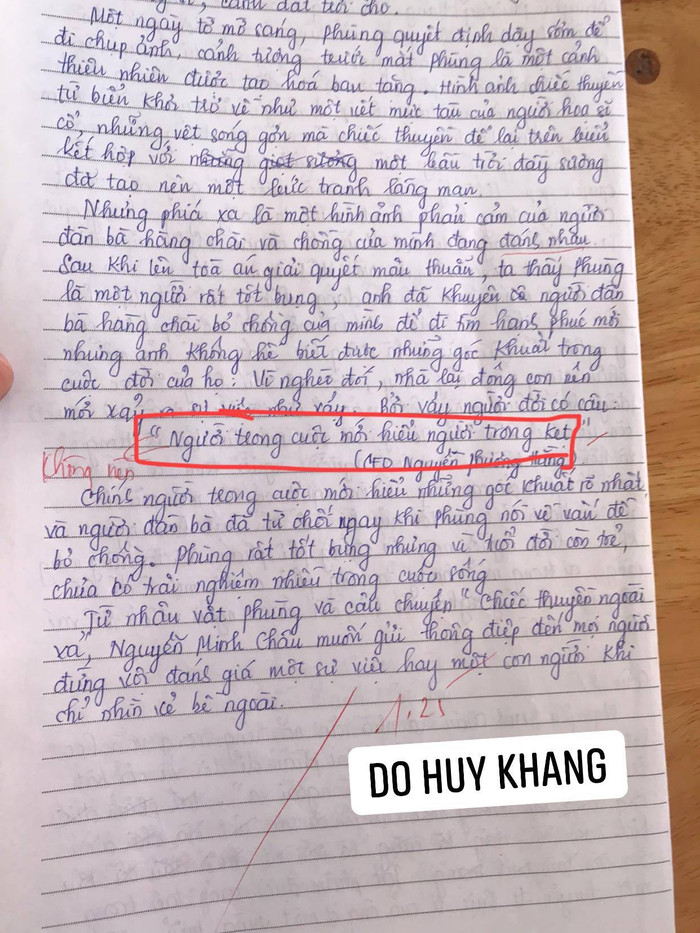 , cảnh đất trời cho.
Một ngày tờ mờ sáng, phùng quyết định dậy sớm để
đi chụp ảnh, cảnh tượng trước mắt phùng là một cảnh
thiên nhiên được tạo hoá ban tặng. Hình ảnh chiếc thuyền
từ biển khơi trở về như một vết mực tàu của người hoạ sĩ
cổ, những vệt sóng gợn mà chiếc thuyền để lại trên biển
kết hợp với những giọt sương một bầu trời đầy sương
đã tạo nên một bức tranh lãng mạn.
Nhưng phía xa là một hình ảnh phản cảm của người
đàn bà hàng chài và chồng của mình đang đánh nhau
Sau khi lên toà án giải quyết mâu thuẫn, ta thấy Phùng
là một người rất tốt bụng, anh đã khuyên người đàn
bà hàng chài bỏ chồng của mình để đi tìm hạnh phúc mới
nhưng anh không hề biết được những góc khuất trong
cuộc đời của họ: Vì nghèo đói, nhà lại đông con nên
mới xảy ra sự việc như vậy. Bởi vậy người đời có câu:
"Người trong cuộc mới hiểu người trong kẹt"
(CEO Nguyễn Phương Hằng)
Không nên
Chính người trong cuộc mới hiểu những góc khuất rõ nhất
và người đàn bà đã từ chối ngay khi phùng nói về vấn đề
bỏ chồng. Phùng rất tốt bụng nhưng vì tuổi đời còn trẻ,
chưa có trải nghiệm nhiều trong cuộc sống
Từ nhân vật phùng và câu chuyện "Chiếc thuyền ngoài
xa", Nguyễn Minh Châu muốn gửi thông điệp đến mọi người
đừng vội đánh giá một sự việc hay một con người khi
chỉ nhìn vẻ bề ngoài.
1.25
DO HUY KHANG